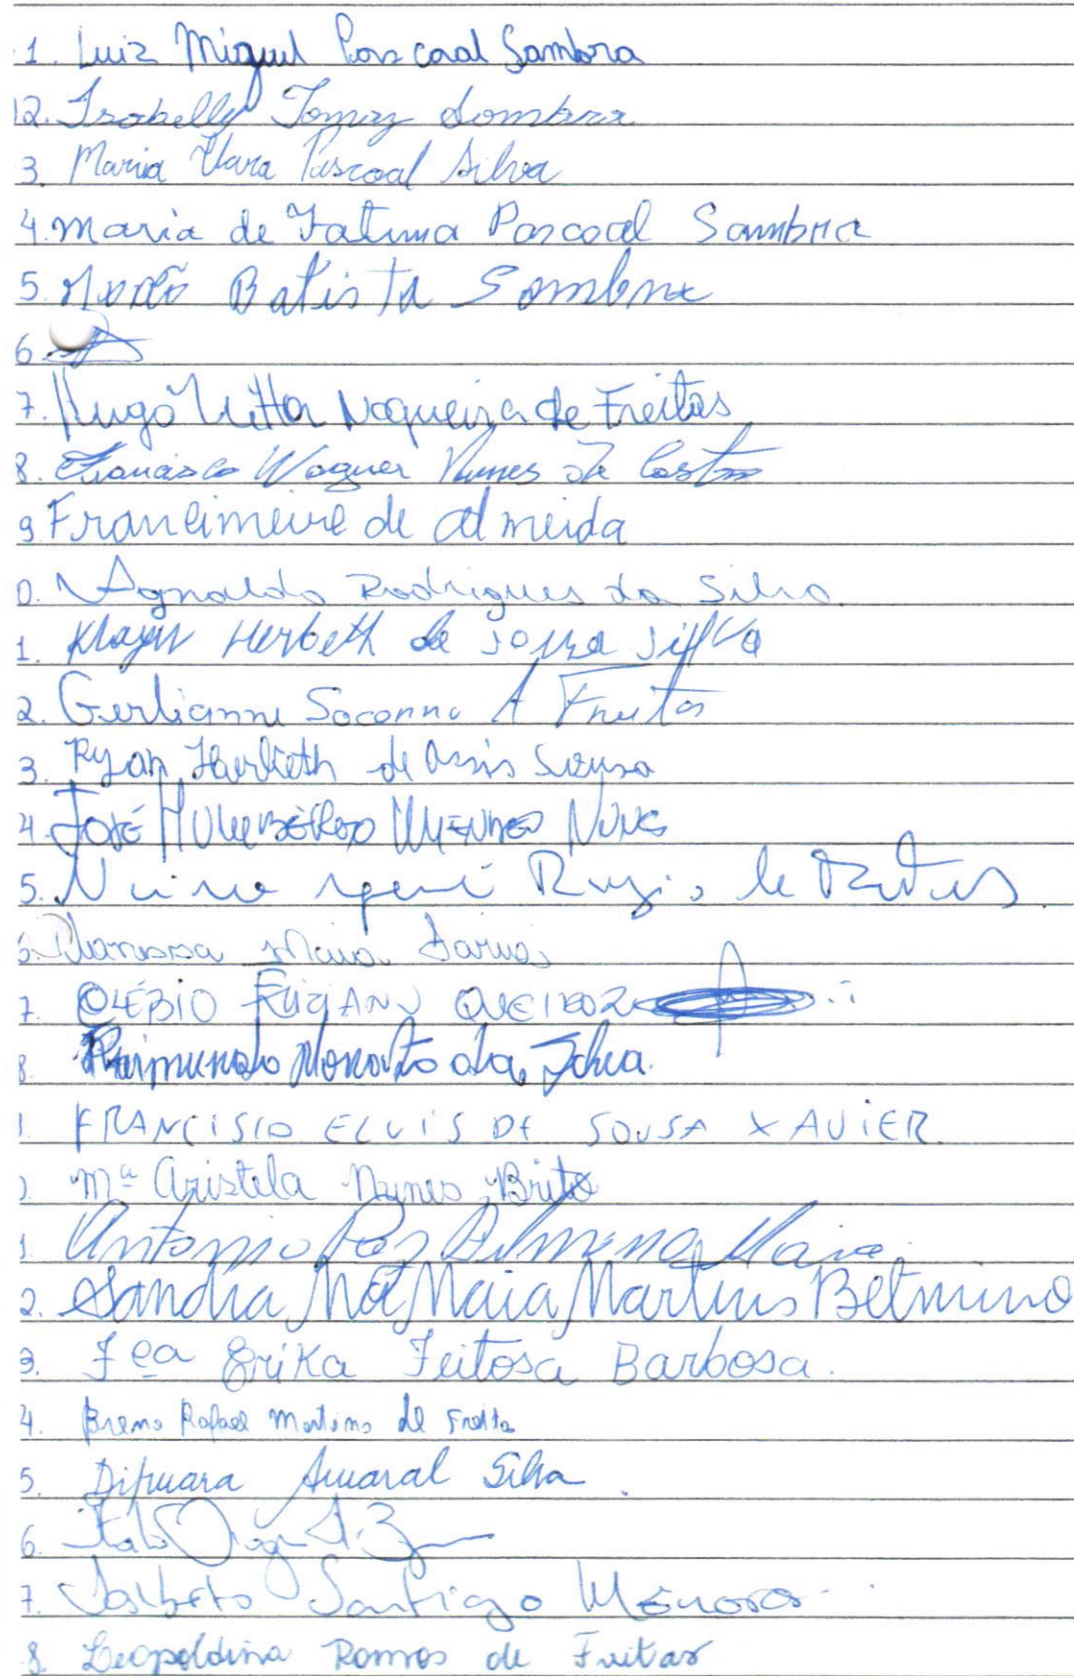 1. Luiz Miguel Pascoal Sombra
12. Isabelly Tomaz Sombra
3. Maria Clara Pascoal Silva
4. Maria de Fatima Pascoal Sombra
5. Batista Sombra
6.
7. Hugo Vitor Nogueira de Freitas
8. Francisco Wagner Nunes de Castro
9 Francimeire de Almeida
0. Agnaldo Rodrigues da Silva
1. Herbeth de Souza Silva
2. Gerlianne Socorro A Freitas
3. Ryan Herbeth de Assis Sousa
4. José Mendes Nunes
5. de
6. Maia Farias
7. QUEIROZ
8. Raimundo Nonato da Silva.
1. FRANCISCO ELVIS DE SOUSA XAVIER
2. Mª Aristela Nunes Brito
1. Antonio Maia
2. Sandra Mª Maia Martins Belmino
3. Fca Erika Feitosa Barbosa.
4. Breno Rafael Martins de Freita
5. Amaral Silva.
6. Italo
7. Santiago
8. Leopoldina Ramos de Freitas